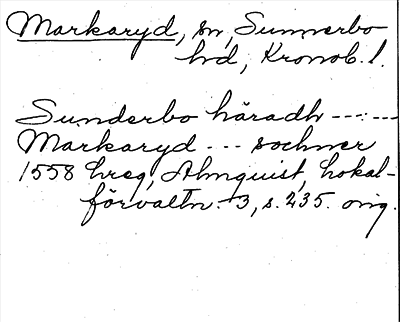 Markaryd, sn, Sunnerbo
hd, Kronob. l.
Sunderbo häradh --- : ---
Markaryd --- sochner
1558 hreg, Almquist, Lokal-
förvaltn. 3, s. 235. orig.